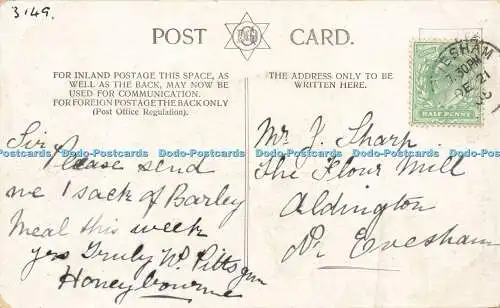 3149.
POST CARD.
FOR INLAND POSTAGE THIS SPACE, AS
WELL AS THE BACK, MAY NOW BE
USED FOR COMMUNICATION.
FOR FOREIGN POSTAGE THE BACK ONLY
(Post Office Regulation).
THE ADDRESS ONLY TO BE
WRITTEN HERE.
ESHAM
7.30PM
DE 21
HALF PENNY
Sir Please send
me 1 sack of Barley
Meal this week
yrs Truly W. Pitts
Honeybourne
Mr J. Sharp
The Flour Mill
Aldington
Nr Evesham
Dodo-Postcards Dodo-Postcards Dodo-Postcards Dodo-Postcards Dodo-Postcards